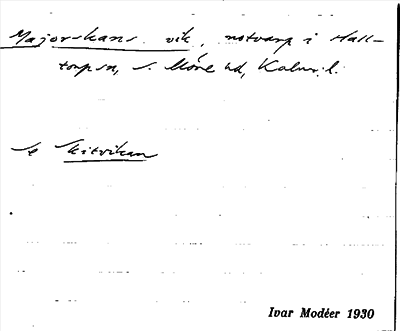 Majorskans vik, notvarp i Hall-
torp sn, S. Möre hd, Kalm. l.
Kitvikan
Ivar Modéer 1930